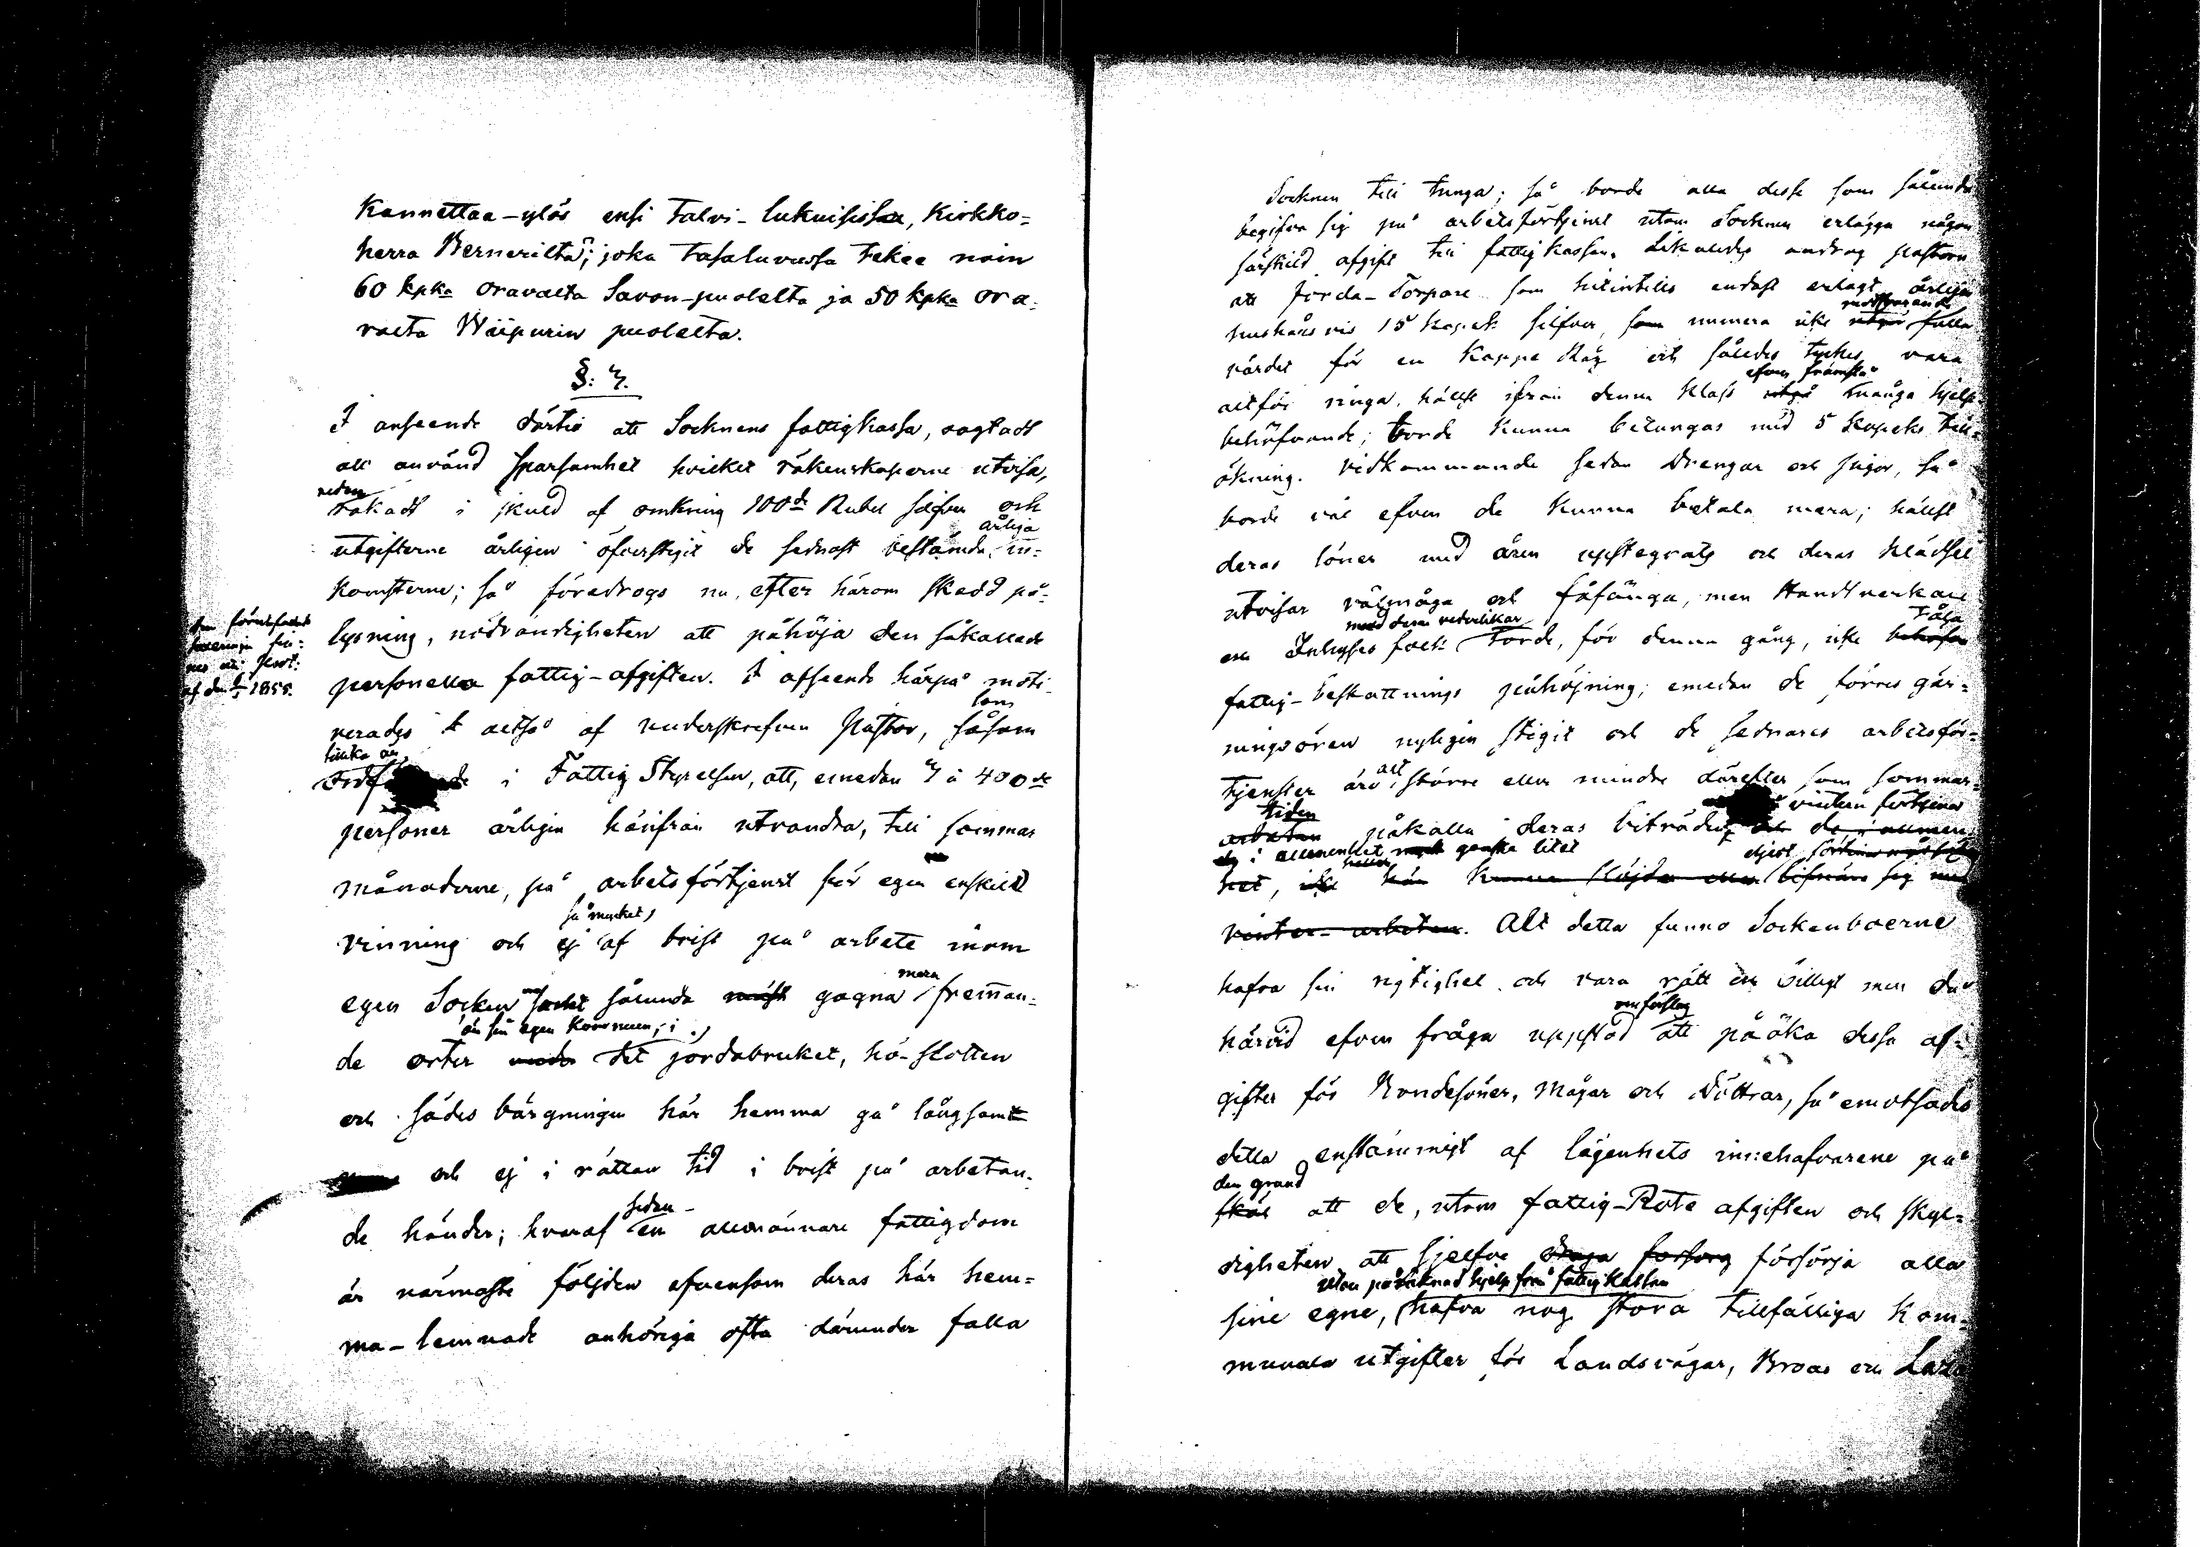 Kannettaa-ylös ensi talvi-lukuisissa, Kirkko=
herra Bernerilta; joka tasaluvussa tekee noin
60 kpka oravalta Savon-puolelta ja 50 kpka ora-
valta Wiipurin puolelta.
§: 4.
I anseende därtill att Socknens fattigkassa, oagtadt
all använd sparsamhet hvilket räkenskaperne utvisa,
redan
råkadt i skuld af omkring 100de Rubel silfver och
årliga
utgifterne årligen öfverstigit de sednast bestämda in=
komsterne; så föredrogs nu, efter härom skedd på-
lysning, nödvändigheten att påhöja den såkallade
af den 1855.
personella fattig-afgiften. I afseende härpå moti-
som
verades altså af underskrefven Pastor, såsom
i Fattig Styrelsen, att, emedan 3 à 400de
personer årligen härifrån utvandra, till sommar
månaderne, på arbetsförtjenst för egen enskild
så mycket
vinning och ej af brist på arbete inom
mera
egen Socken sålunda gagna fremman-
än sin egen Kommun, i
de orter det jordabruket, hö-slotten
och sädes bärgningen här hemma gå långsamt
och ej i rättan tid i brist på arbetan-
sedan
de händer; hvaraf en allmännare fattigdom
är närmaste följden efvensom deras här hem=
ma-lemnade anhöriga ofta därunder falla
Socknen till tunga; så borde alla desse som sålunda
begifva sig på arbetsförtjenst utom Socknen erlägga någon
särskild afgift till fattigkassan. Likaledes androg pastorn
att Jorda-Torpare som hitintills endast erlagt årligen
motsvarande
hushålsvis 15 kopek silfver, som numera icke utgör fulla
värdet för en Kappe Råg och således tyckes vara
efven framstå
altför ringa, hällst ifrån denna Klass många hjelp-
behöfvande; torde kunna betungas med 5 Kopeks till=
ökning. Vidkommande sedan Drengar och pigor, så
borde väl efven de kunna betala mera; hällst
deras löner med åren uppstegrats och deras klädsel
utvisar välmåga och fåfänga, men Handtverkare
med deras vederlikar tåla
och Inhyses folk torde, för denna gång, icke behöfva
fattig-beskattnings påhöjning; emedan de förres gär=
ningsören nyligen stigit och de sednares arbetsför=
alt
tjenster äro större eller mindre därefter som sommar=
tiden vintern förtjena
arbeten påkalla deras biträde och de i allmen
i allmenhet ganska litet
het, icke kunna slöjda eller sig med
vinter-arbeten. Alt detta funno Sockenboerne
hafva sin rigtighet och vara rätt och billigt men då
om förslag
härvid efven fråga uppstod att påöka dessa af=
gifter för Bondesöner, Mågar och Döttrar, så emotsades
detta enstämmigt af lägenhets innehafvarene på
den grund
skäl att de, utom fattig-Rote afgiften och skyl=
digheten att sjelfve draga försorg försörja alla
utan påräknad hjelp från fattigkassan
sine egne, hafva nog stora tillfälliga Kom=
munala utgifter för Landsvägar, Broar och